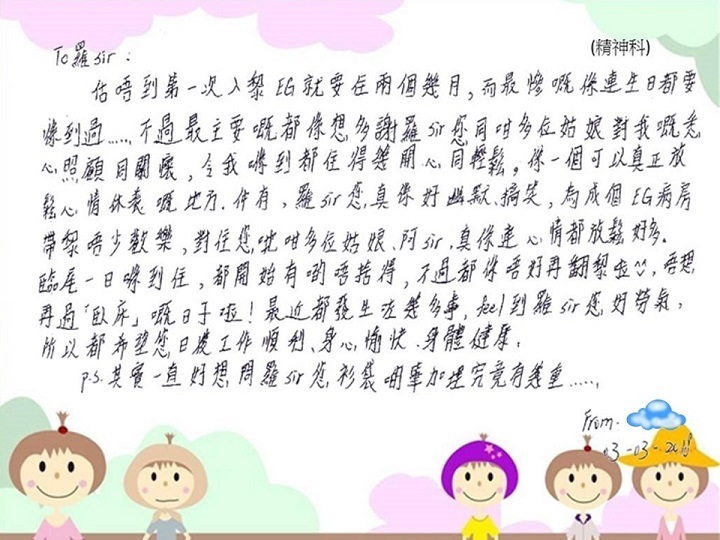 (精神科)
To 羅sir：
估唔到第一次入黎EG就要住兩個幾月，而最慘嘅係連生日都要
喺到過……，不過最主要嘅都係想多謝羅sir您同咁多位姑娘對我嘅悉
心照顧同關懷，令我喺到都住得幾開心同輕鬆。係一個可以真正放
鬆心情休養嘅地方。仲有，羅sir您真係好幽默、搞笑，為成個EG病房
帶黎唔少歡樂，對住您哋咁多位姑娘、阿sir，真係連心情都放鬆好多。
臨尾一日喺到住，都開始有啲唔捨得，不過都係唔好再翻黎啦，唔想
再過「臥床」嘅日子啦！最近都發生咗幾多事，feel到羅sir您好勞氣，
所以都希望您日後工作順利、身心愉快、身體健康。
p.s.其實一直好想問羅sir您衫袋啲筆加埋究竟有幾重……
From:
03-03-2018